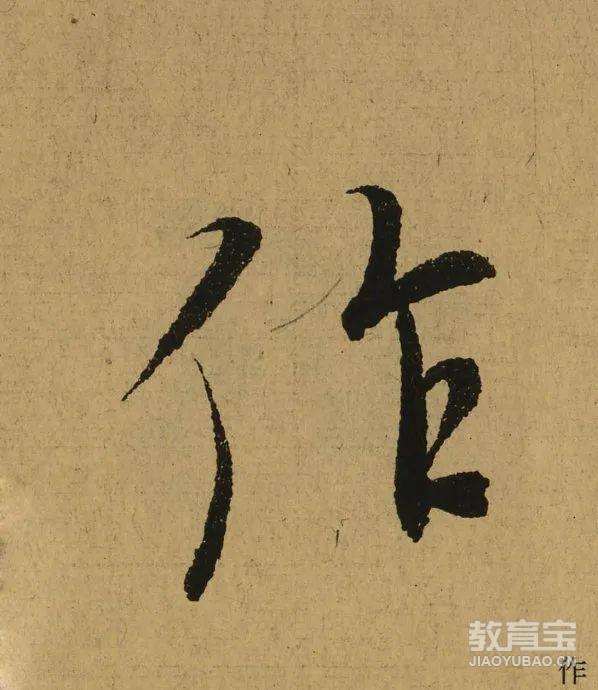 作
教育宝
JIAOYUBAO.CN
作